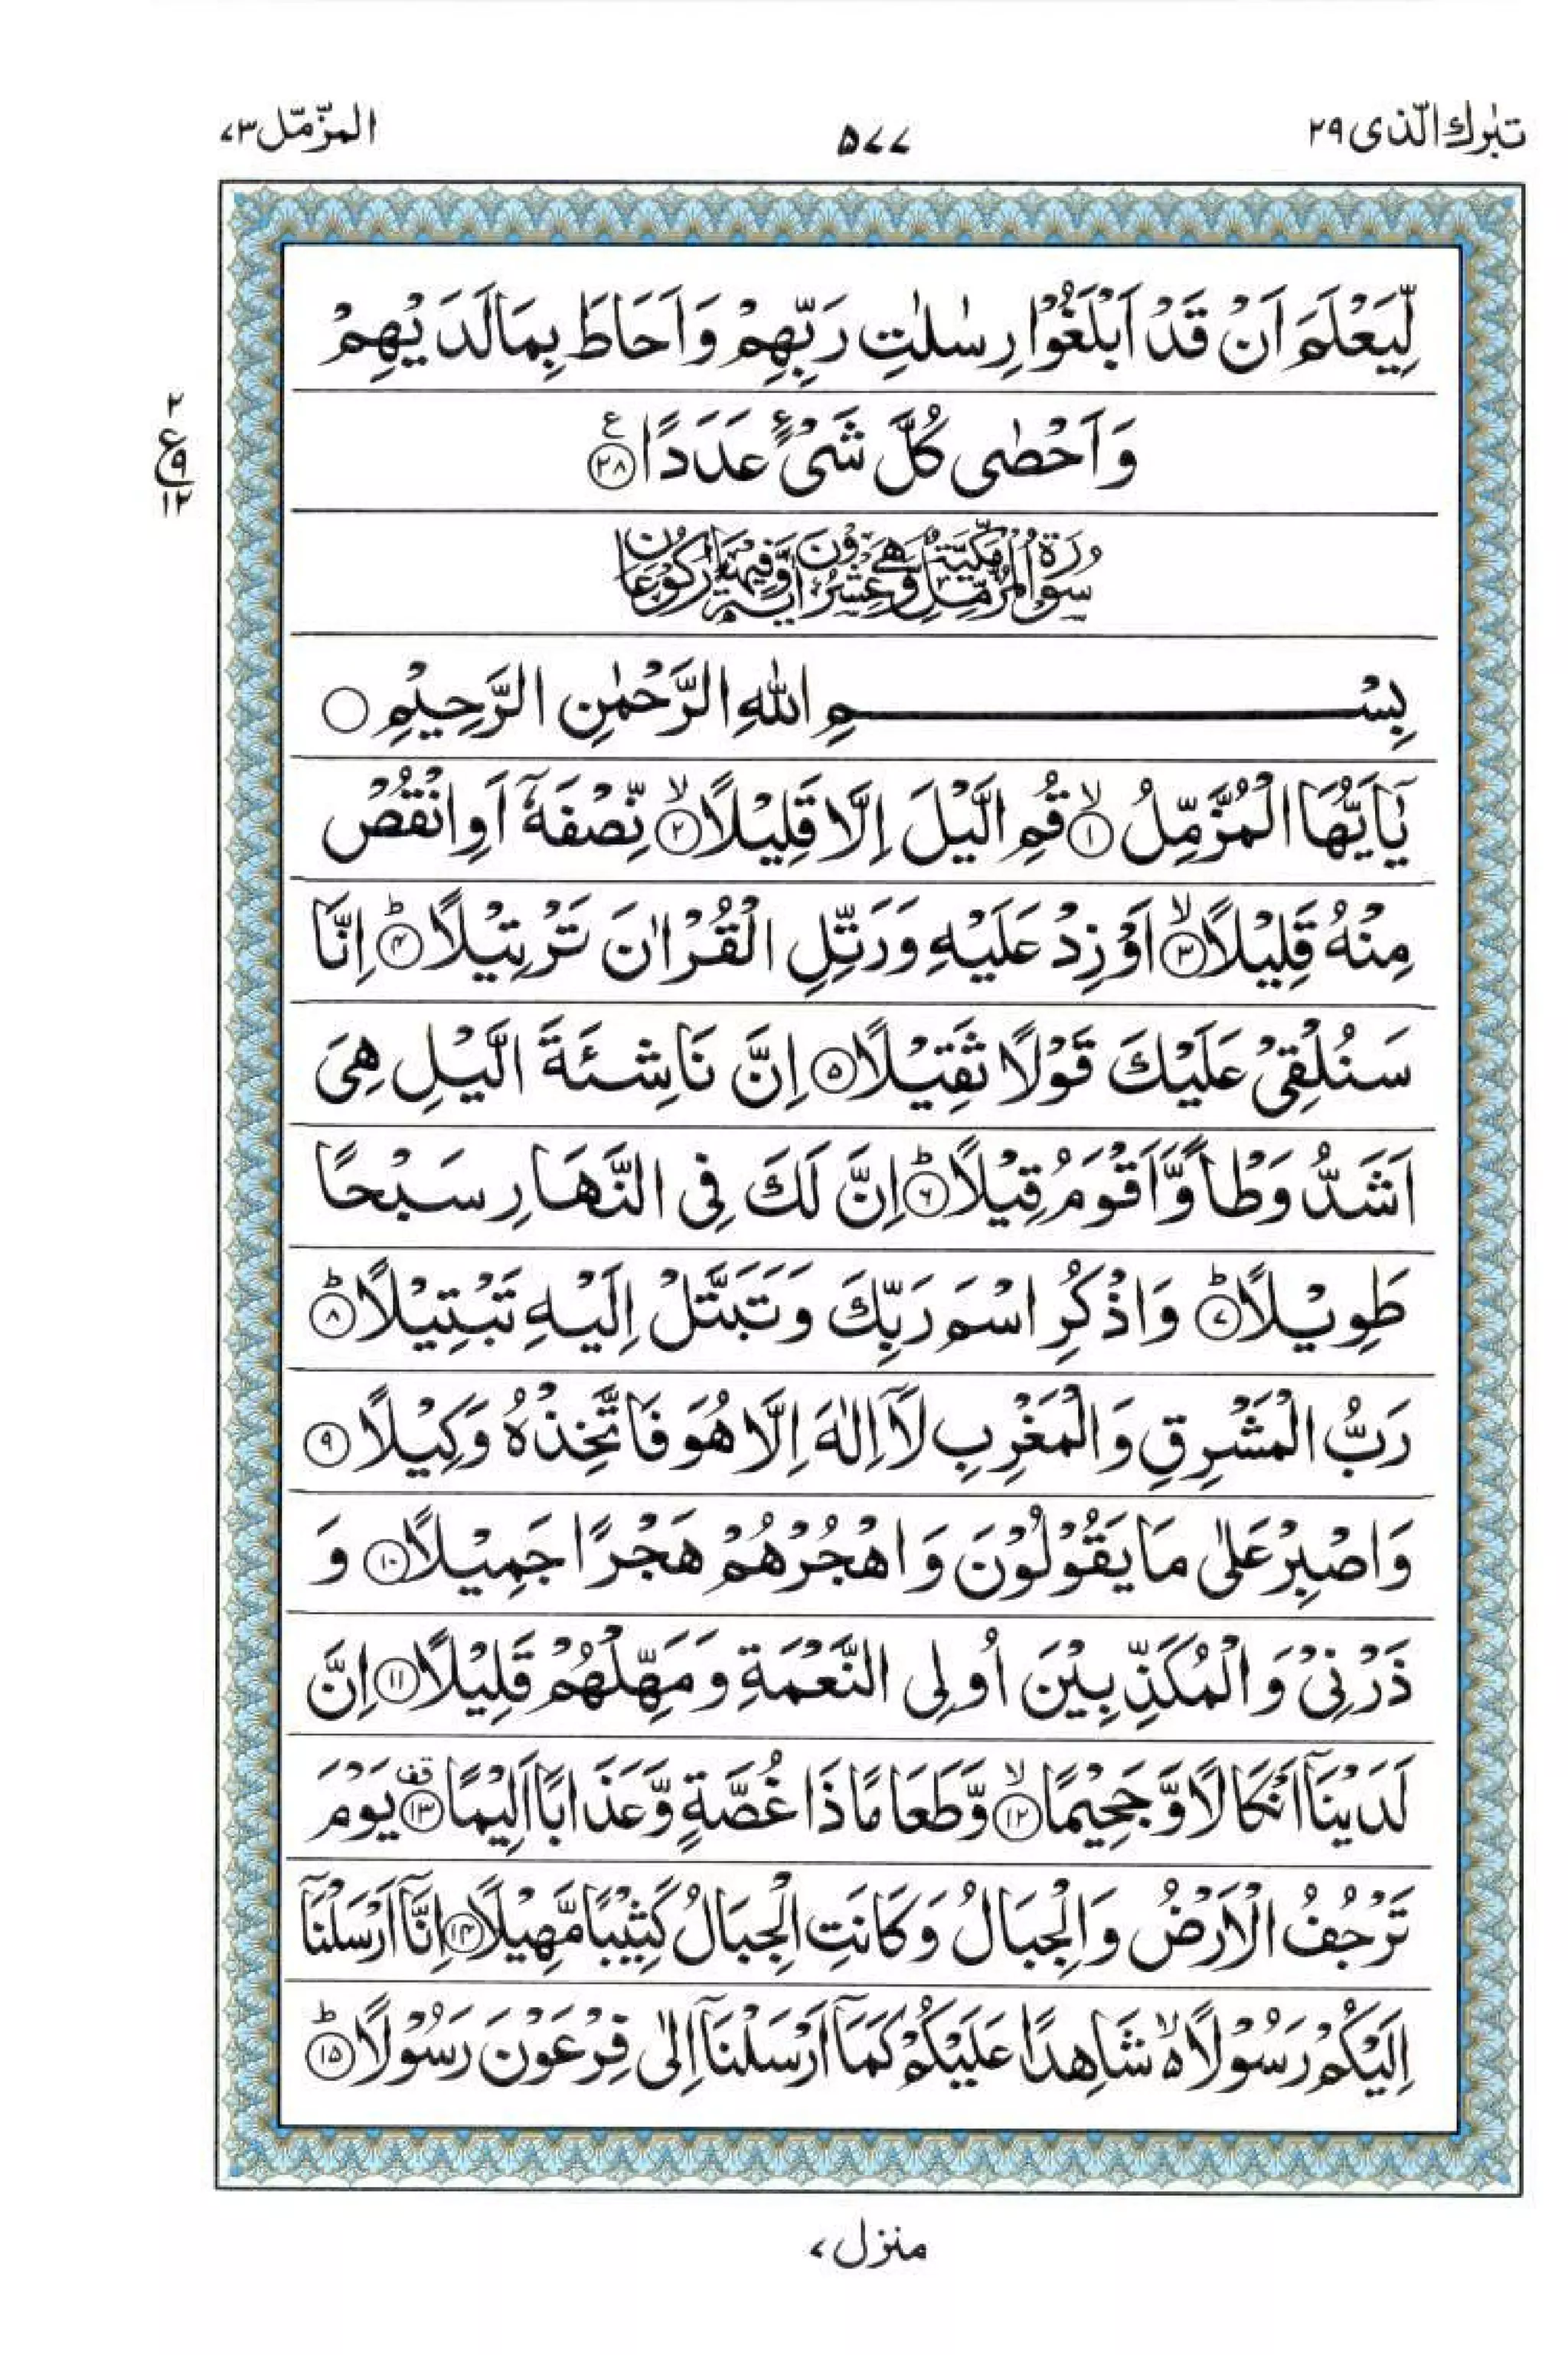 تبٰرك الّذی ۲۹
۵۷۷
المزّمّل ۷۳
لِّیَعْلَمَ اَنْ قَدْ اَبْلَغُوْا رِسٰلٰتِ رَبِّهِمْ وَاَحَاطَ بِمَا لَدَیْهِمْ
وَاَحْصٰی كُلَّ شَیْءٍ عَدَدًا ﴿۲۸﴾ ع
۲
ع ۹
۱۲
سُوْرَةُ الْمُزَّمِّلِ مَكِّيَّةٌ وَّهِيَ عِشْرُوْنَ اٰيَةً وَّفِيْهَا رُكُوْعَانِ
بِسْمِ اللّٰهِ الرَّحْمٰنِ الرَّحِیْمِ ○
یٰۤاَیُّهَا الْمُزَّمِّلُ ﴿۱﴾ۙ قُمِ الَّیْلَ اِلَّا قَلِیْلًا ﴿۲﴾ۙ نِّصْفَهٗۤ اَوِ انْقُصْ
مِنْهُ قَلِیْلًا ﴿۳﴾ۙ اَوْ زِدْ عَلَیْهِ وَرَتِّلِ الْقُرْاٰنَ تَرْتِیْلًا ﴿۴﴾ؕ اِنَّا
سَنُلْقِیْ عَلَیْكَ قَوْلًا ثَقِیْلًا ﴿۵﴾ اِنَّ نَاشِئَةَ الَّیْلِ هِیَ
اَشَدُّ وَطْاً وَّاَقْوَمُ قِیْلًا ﴿۶﴾ؕ اِنَّ لَكَ فِی النَّهَارِ سَبْحًا
طَوِیْلًا ﴿۷﴾ؕ وَاذْكُرِ اسْمَ رَبِّكَ وَتَبَتَّلْ اِلَیْهِ تَبْتِیْلًا ﴿۸﴾ؕ
رَبُّ الْمَشْرِقِ وَالْمَغْرِبِ لَاۤ اِلٰهَ اِلَّا هُوَ فَاتَّخِذْهُ وَكِیْلًا ﴿۹﴾
وَاصْبِرْ عَلٰی مَا یَقُوْلُوْنَ وَاهْجُرْهُمْ هَجْرًا جَمِیْلًا ﴿۱۰﴾ وَ
ذَرْنِیْ وَالْمُكَذِّبِیْنَ اُولِی النَّعْمَةِ وَمَهِّلْهُمْ قَلِیْلًا ﴿۱۱﴾ اِنَّ
لَدَیْنَاۤ اَنْكَالًا وَّجَحِیْمًا ﴿۱۲﴾ۙ وَّطَعَامًا ذَا غُصَّةٍ وَّعَذَابًا اَلِیْمًا ﴿۱۳﴾قف یَوْمَ
تَرْجُفُ الْاَرْضُ وَالْجِبَالُ وَكَانَتِ الْجِبَالُ كَثِیْبًا مَّهِیْلًا ﴿۱۴﴾ اِنَّاۤ اَرْسَلْنَاۤ
اِلَیْكُمْ رَسُوْلًا ۬ۙ شَاهِدًا عَلَیْكُمْ كَمَاۤ اَرْسَلْنَاۤ اِلٰی فِرْعَوْنَ رَسُوْلًا ﴿۱۵﴾ؕ
منزل ۷